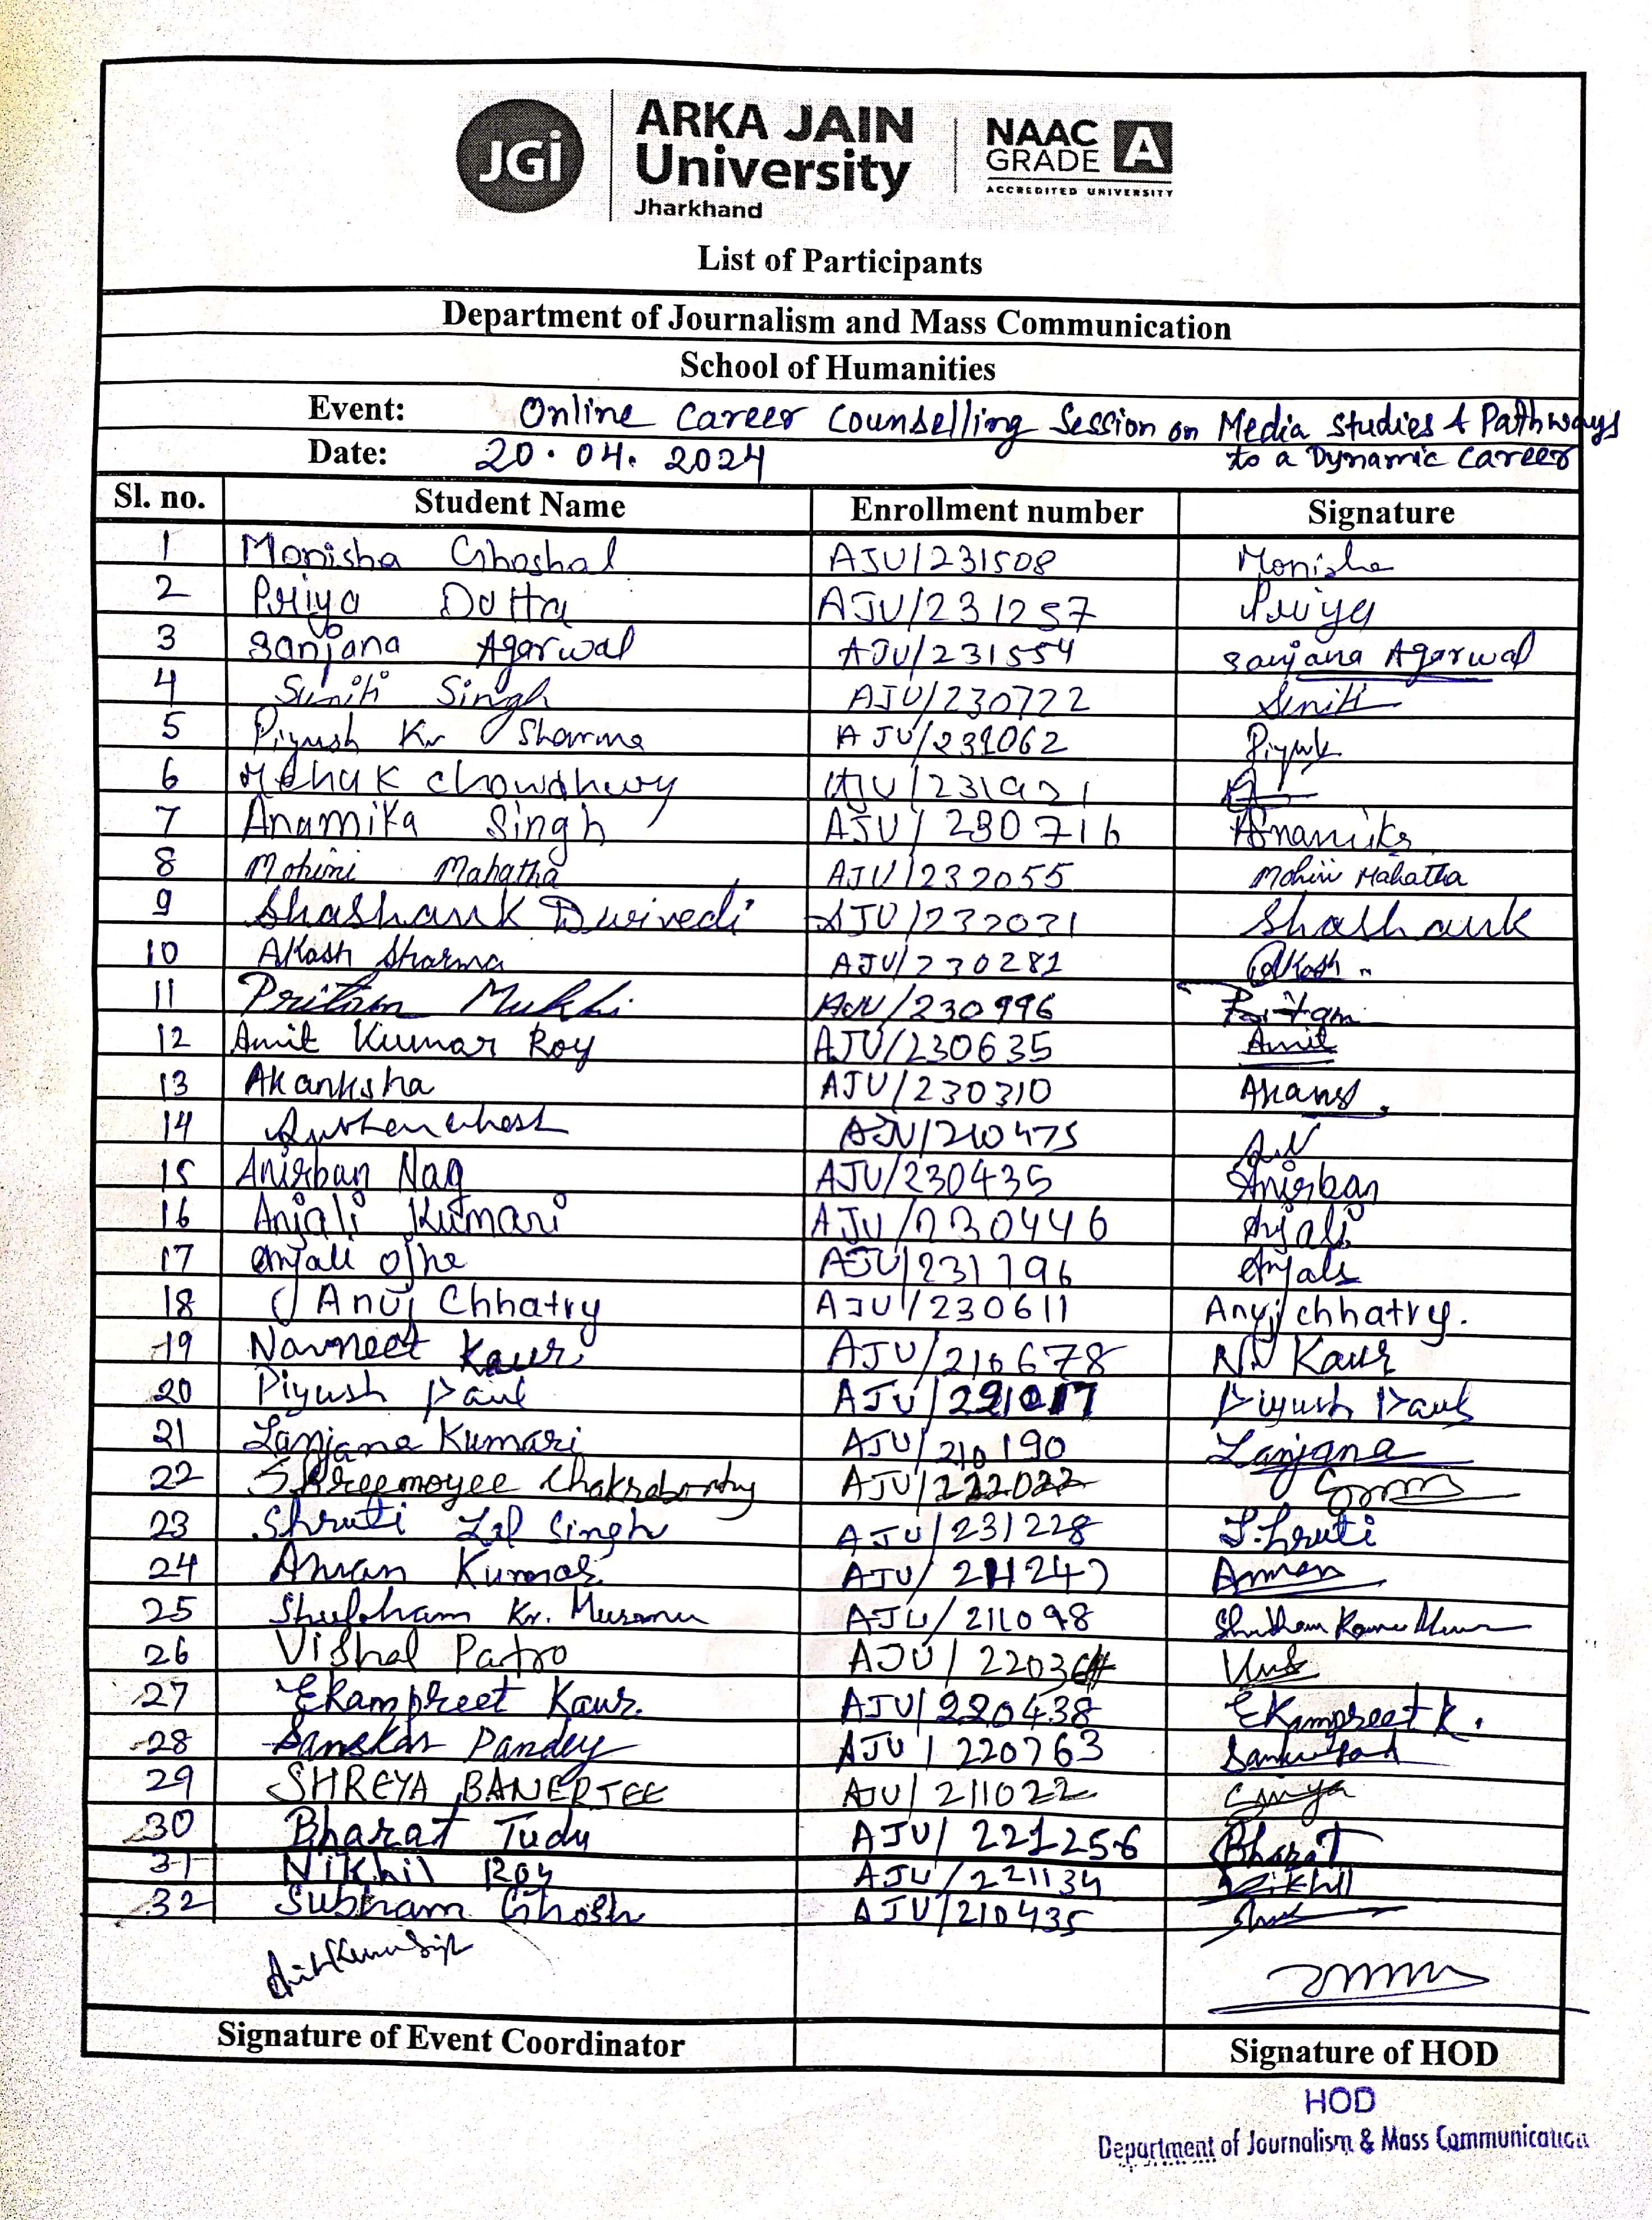 JGi ARKA JAIN University Jharkhand NAAC GRADE A ACCREDITED UNIVERSITY
List of Participants
Department of Journalism and Mass Communication
School of Humanities
Event: Online Career Counselling Session on Media Studies & Pathways
to a Dynamic Career
Date: 20.04.2024
Sl. no. Student Name Enrollment number Signature
1 Monisha Ghoshal AJU/231508 Monisha
2 Priya Dutta AJU/231257 Priya
3 Sanjana Agarwal AJU/231554 Sanjana Agarwal
4 Suniti Singh AJU/230722 Suniti
5 Piyush Kr Sharma AJU/231062 Piyush
6 Mehak Chowdhury
7 Anamika Singh AJU/230716 Anamika
8 Mohini Mahatha AJU/232055 Mohini Mahatha
9 Shashank Dwivedi AJU/232031 Shashank
10 Akash Sharma AJU/230281 Akash
11 Pritam Mukhi AJU/230996 Pritam
12 Amit Kumar Roy AJU/230635 Amit
13 Akanksha AJU/230310
14 AJU/210475
15 Anirban Nag AJU/230435 Anirban
16 Anjali Kumari AJU/230446 Anjali
17 Anjali Ojha AJU/231796 Anjali
18 Anuj Chhatry AJU/230611 Anuj chhatry.
19 Navneet Kaur AJU/210678 Kaur
20 Piyush Paul Piyush Paul
21 Sanjana Kumari AJU/210190 Sanjana
22 Shreemoyee Chakraborty AJU/222022
23 Shruti Lal Singh AJU/231228 Shruti
24 Aman Kumar AJU/211247 Aman
25 Shubham Kr. Murmu AJU/211098
26 Vishal Patro
27 Ekampreet Kaur. AJU/220438 Ekampreet K.
28 Sanskar Pandey AJU/220763
29 SHREYA BANERJEE AJU/211022
30 Bharat Tudu AJU/221256 Bharat
31 Nikhil Roy AJU/221134 Nikhil
32 Subham Ghosh AJU/210435
Signature of Event Coordinator Signature of HOD
HOD
Department of Journalism & Mass Communication